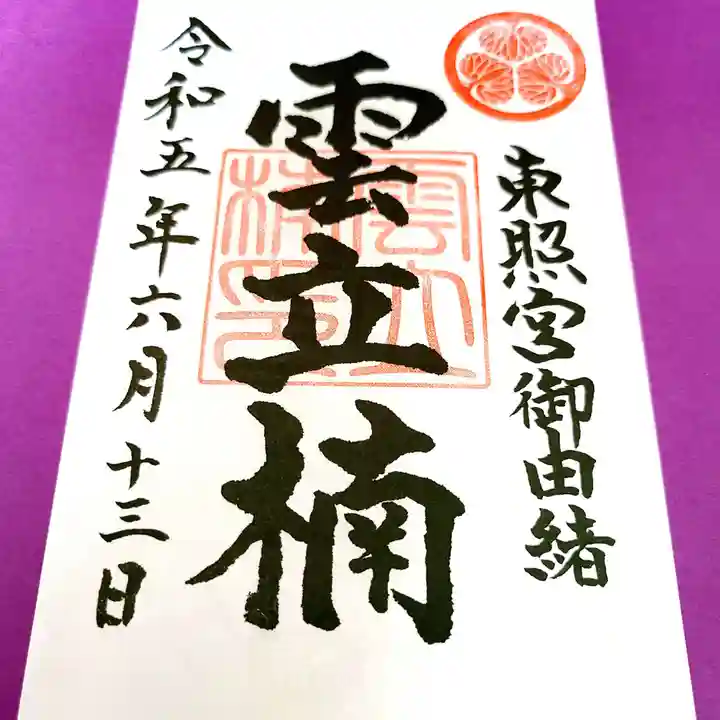 東照宮御由緒
雲立楠
令和五年六月十三日